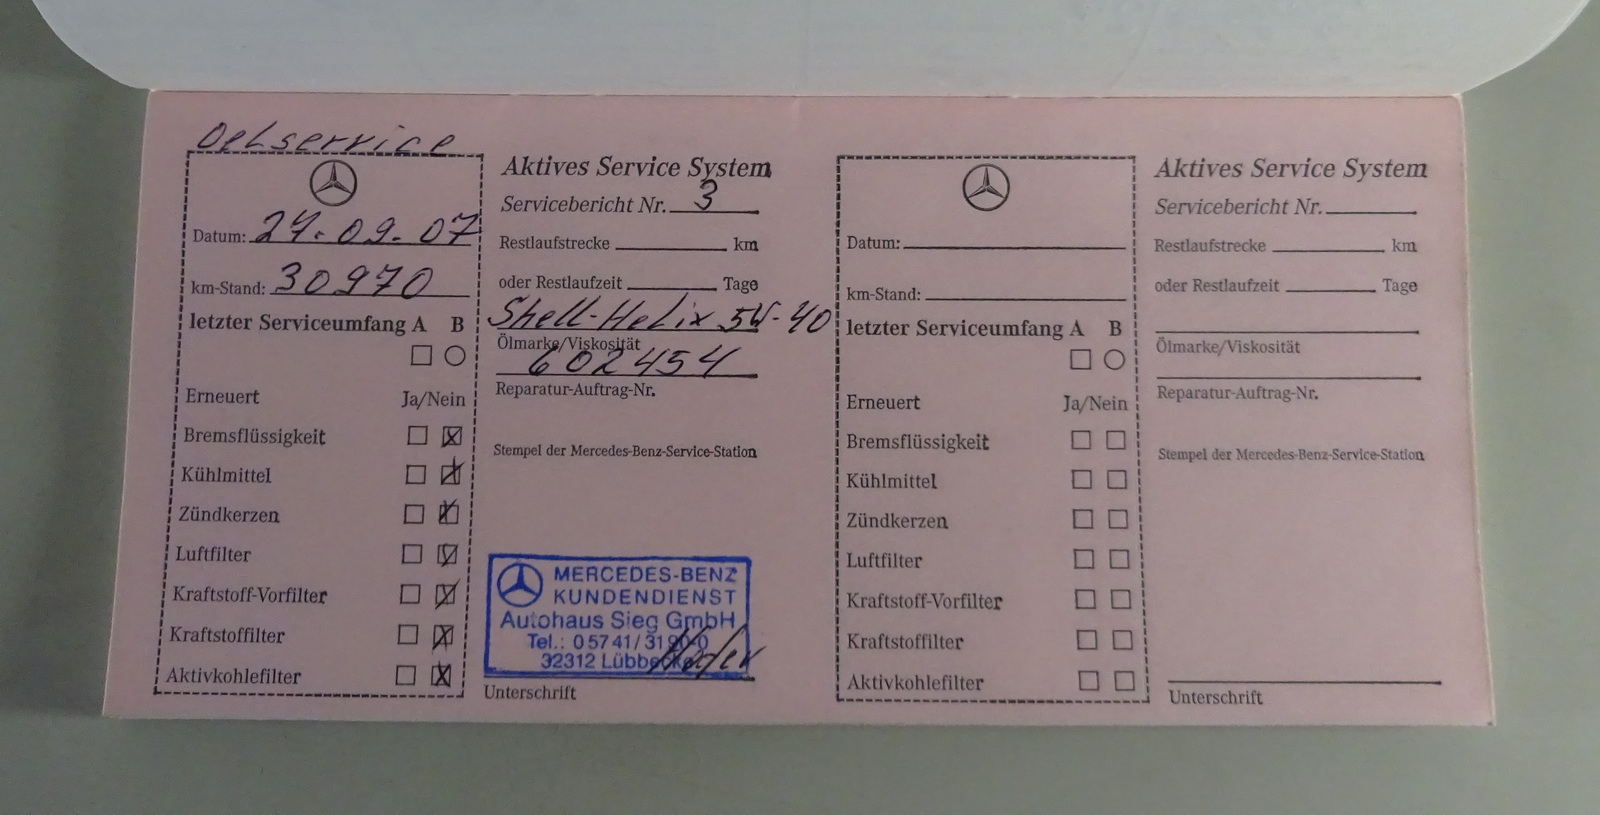 Oelservice
Datum: 24.09.07
km-Stand: 30970
letzter Serviceumfang A B
Erneuert Ja/Nein
Bremsflüssigkeit
Kühlmittel
Zündkerzen
Luftfilter
Kraftstoff-Vorfilter
Kraftstoffilter
Aktivkohlefilter
Aktives Service System
Servicebericht Nr. 3
Restlaufstrecke km
oder Restlaufzeit Tage
Shell-Helix 5W-40
Ölmarke/Viskosität
602454
Reparatur-Auftrag-Nr.
Stempel der Mercedes-Benz-Service-Station
MERCEDES-BENZ
KUNDENDIENST
Autohaus Sieg GmbH
Tel.: 05741/3190-0
32312 Lübbecke
Unterschrift
Datum:
km-Stand:
letzter Serviceumfang A B
Erneuert Ja/Nein
Bremsflüssigkeit
Kühlmittel
Zündkerzen
Luftfilter
Kraftstoff-Vorfilter
Kraftstoffilter
Aktivkohlefilter
Aktives Service System
Servicebericht Nr.
Restlaufstrecke km
oder Restlaufzeit Tage
Ölmarke/Viskosität
Reparatur-Auftrag-Nr.
Stempel der Mercedes-Benz-Service-Station
Unterschrift